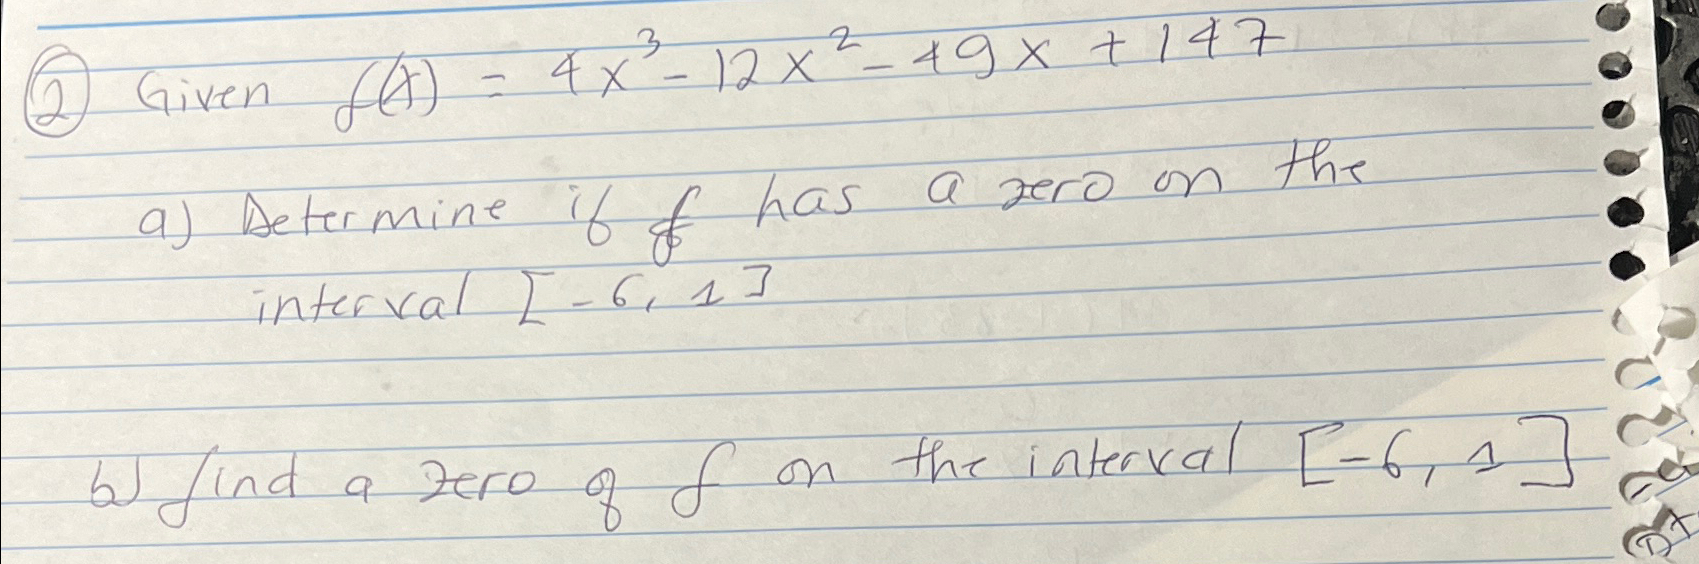 ② Given f(x) = 4x³ - 12x² - 49x + 147
a) Determine if f has a zero on the
interval [-6, 1]
b) find a zero of f on the interval [-6, 1]